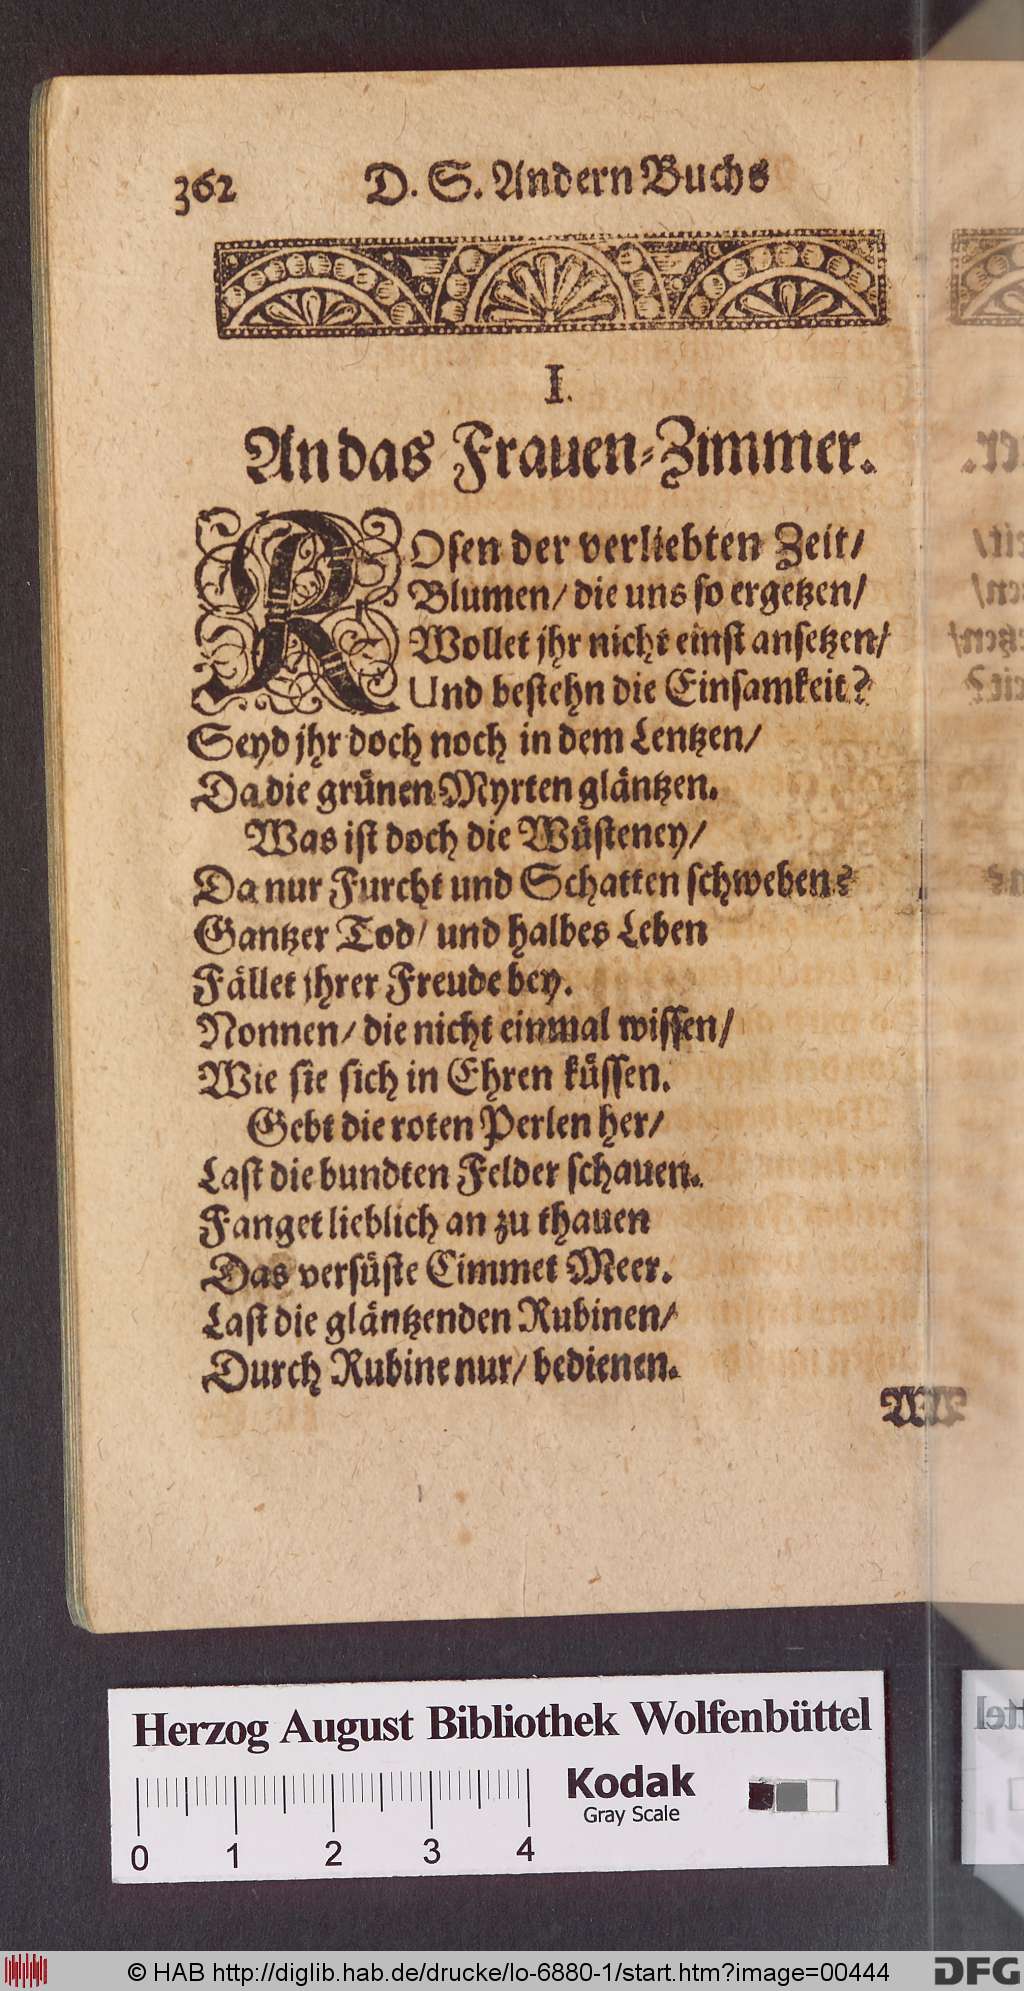 362 D. S. Andern Buchs
I.
An das Frauen-Zimmer.
ROsen der verliebten Zeit/
Blumen/ die uns so ergetzen/
Wollet jhr nicht einst ansetzen/
Und bestehn die Einsamkeit?
Seyd jhr doch noch in dem Lentzen/
Da die grünen Myrten gläntzen.
Was ist doch die Wüsteney/
Da nur Furcht und Schatten schweben?
Gantzer Tod/ und halbes Leben
Fället jhrer Freude bey.
Nonnen/ die nicht einmal wissen/
Wie sie sich in Ehren küssen.
Gebt die roten Perlen her/
Last die bundten Felder schauen.
Fanget lieblich an zu thauen
Das versüste Cimmet Meer.
Last die gläntzenden Rubinen/
Durch Rubine nur/ bedienen.
Herzog August Bibliothek Wolfenbüttel
Kodak
Gray Scale
0 1 2 3 4
© HAB http://diglib.hab.de/drucke/lo-6880-1/start.htm?image=00444
DFG